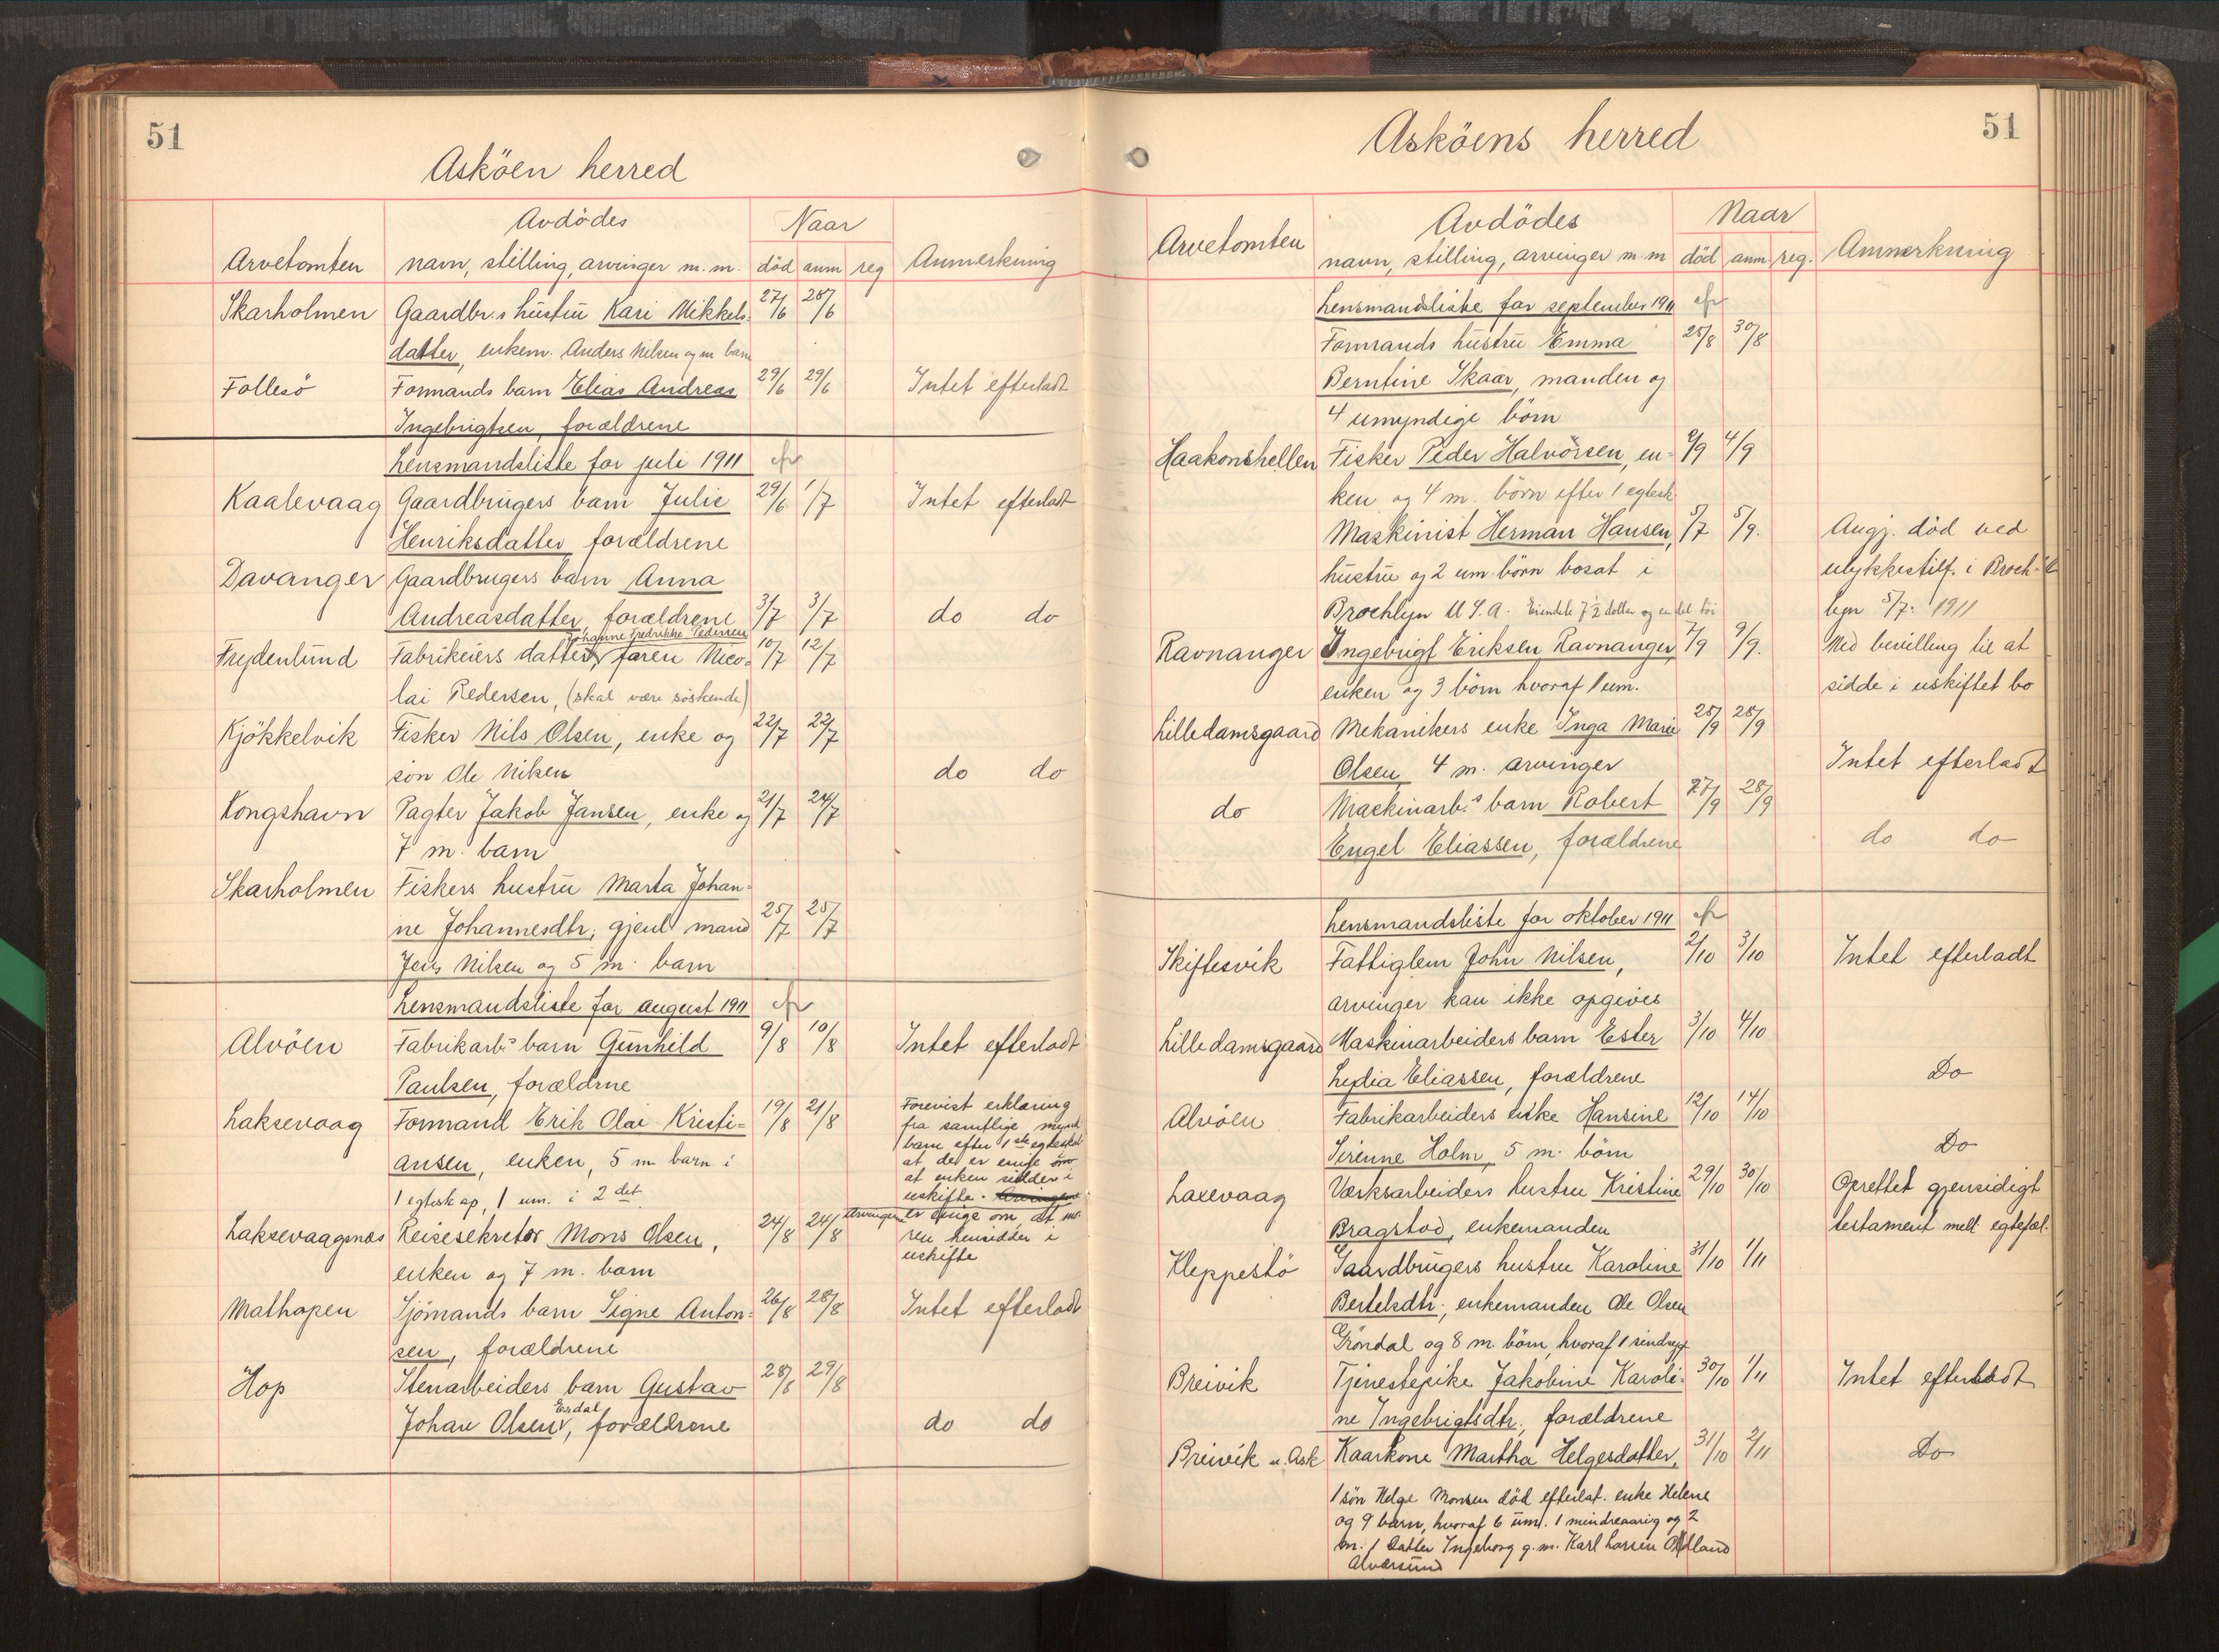 51
Asköen herred
Avdödes
Naar
Arvetomten navn, stilling, arvinger m. m. död anm reg Anmerkning
Skarholmen Gaardbr.s hustru Kari Mikkels- 27/6 28/6
datter, enkem. Anders Nilsen og m barn
Follesö Formands barn Elias Andreas 29/6 29/6 Intet efterladt
Ingebrigtsen, forældrene
Lensmandsliste for juli 1911
Kaalevaag Gaardbrugers barn Julie 29/6 1/7 Intet efterladt
Henriksdatter, forældrene
Davanger Gaardbrugers barn Anna
Andreasdatter, forældrene 3/7 3/7 do do
Johanne Fredrikke Pedersen
Frydenlund Fabrikeiers datter, faren Nico- 10/7 12/7
lai Pedersen, (skal være söskende)
Kjökkelvik Fisker Nils Olsen, enke og 22/7 22/7
sön Ole Nilsen do do
Kongshavn Pagter Jakob Jansen, enke og 21/7 24/7
7 m. barn
Skarholmen Fiskers hustru Marta Johan-
ne Johannesdtr, gjenl mand 25/7 25/7
Jens Nilsen og 5 m. barn
Lensmandsliste for august 1911
Alvöen Fabrikarb.s barn Gunhild 9/8 10/8 Intet efterladt
Paulsen, forældrne
Laksevaag Formand Erik Olai Kristi- 19/8 21/8 Forevist erklæring
fra samtlige mynd
barn efter 1ste egteskab
ansen, enken, 5 m. barn i at der er enige om
at enken sidder i
1 egtesk ap, 1 um. i 2 det uskifte. Arvingene
Laksevaagsnæs Reisesekretær Mons Olsen, 24/8 24/8 Arvingene er enige om, at
ren hensidder i
uskifte
enken og 7 m. barn
Mathopen Sjömands barn Signe Anton- 26/8 28/8 Intet efterladt
sen, forældrene
Hop Stenarbeiders barn Gustav 28/8 29/8
Erdal
Johan Olsen, forældrene do do
51
Asköens herred
Avdödes
Naar
Arvetomten navn, stilling, arvinger m m död anm reg. Anmerkning
Lensmandsliste for september 1911
Formands hustru Emma 25/8 30/8
Berntine Skaar, manden og
4 umyndige börn
Haakonshellen Fisker Peder Halvorsen, en- 2/9 4/9
ken og 4 m. börn efter 1 egtesk
Maskinist Herman Hansen, 5/7 5/9. Angj. död ved
hustru og 2 um. börn bosat i ulykkestilf. i Brock-
Brocklyn U S. A. Eiendele 7 1/2 dollar og en del töi lyn 5/7. 1911
Ravnanger Ingebrigt Eriksen Ravnanger, 7/9 9/9. Med bevilling til at
enken og 3 börn hvoraf 1 um. sidde i uskiftet bo
Lilledamsgaard Mekanikers enke Inga Marie 25/9 28/9
Olsen 4 m. arvinger Intet efterladt
do Maskinarb.s barn Robert 27/9 28/9
Engel Eliassen, forældrene do do
Lensmandsliste for oktober 1911
Skiftesvik Fattiglem John Nilsen, 2/10 3/10 Intet efterladt
arvinger kan ikke opgives
Lilledamsgaard Maskinarbeiders barn Ester 3/10 4/10
Lydia Eliassen, forældrene Do
Alvöen Fabrikarbeiders enke Hansine 12/10 14/10
Sirenne Holm, 5 m. börn Do
Laxevaag Værksarbeiders hustru Kristine 29/10 30/10 Oprettet gjensidigt
Bragstad, enkemanden testament mell. egtefæl.
Kleppestö Gaardbrugers hustru Karoline 31/10 1/11
Bertelsdtr., enkemanden Ole Olsen
Gröndal og 8 m. börn, hvoraf 1 sindssyg
Breivik Tjenestepike Jakobine Karoli- 30/10 1/11 Intet efterladt
ne Ingebrigtsdtr., forældrene
Breivik u. Ask Kaarkone Martha Helgesdatter, 31/10 2/11 Do
1 sön Helge Monsen död efterlat. enke Helene
og 9 barn, hvoraf 6 um. 1 mindreaarig og 2
m. 1 datter Ingeborg g. m. Karl Larsen Odland
Alversund